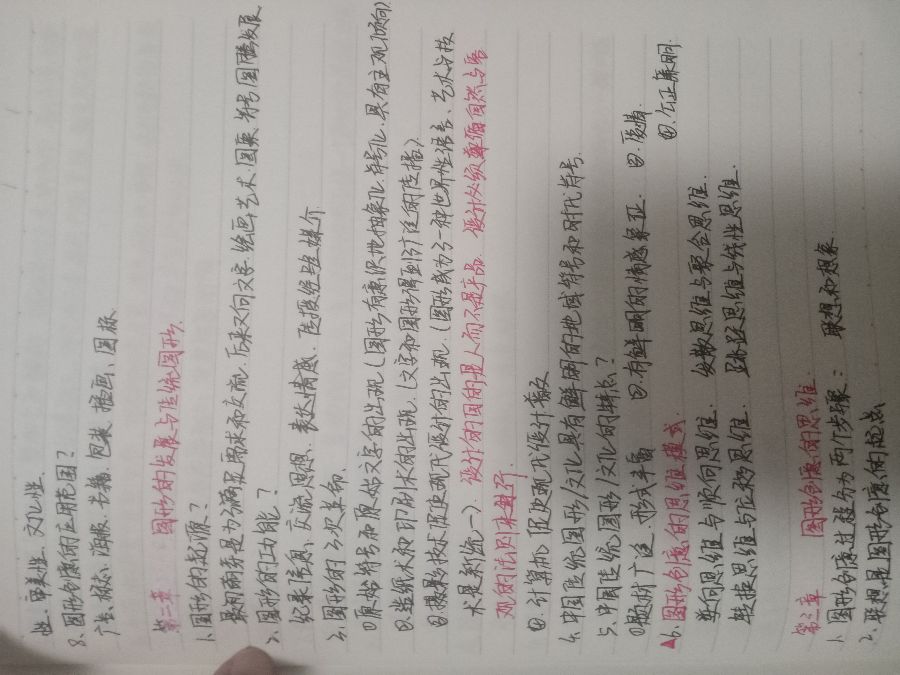 性、审美性、文化性.
8. 图形创意的应用范围?
广告、标志、海报、书籍、包装、插画、图标.
第二章 图形的发展与传统图形.
1. 图形的起源?
最初需求是为满足需求和交流,后来又向文字.绘画艺术.图案.符号图腾发展
2. 图形的功能?
纪录信息、交流思想、表达情感、传授经验媒介.
3. 图形的三次革命.
①原始符号和原始文字的出现(图形有意识地抽象化.符号化.具有主观倾向)
②.造纸术和印刷术的出现.(文字和图形得到广泛的传播)
③摄影技术促使现代设计的出现.(图形成为了一种世界性语言、艺术与技
术是新统一)设计的目的是人而不是产品 设计必须遵循自然与客
观的法则来进行
④计算机 促使现代设计
4. 中国传统图形/文化具有鲜明的地域符号和时代符号.
5. 中国传统图形/文化的特点?
①题材广泛 形式丰富 ②.有鲜明的情感象征.
▲6. 图形创意的思维模式.
逆向思维与顺向思维. 发散思维与聚合思维.
转换思维与位移思维.
第三章 图形创意的思维.
1. 图形创意过程分为两个步骤: 联想和想象
2. 联想是图形创意的起点